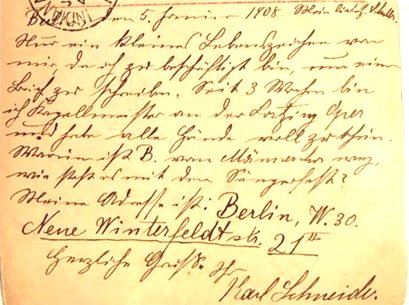 Berlin, den 5. Januar 1908. Mein lieber
Nur ein kleines Lebenszeichen von
mir da ich zu beschäftigt bin, um einen
Brief zu schreiben. Seit 3 Wochen bin
ich Kapellmeister an der Lortzing Oper
und habe alle Hände voll zu thun.
Warum ist B. von weg,
wie steht es mit dem Sängerfest?
Meine Adresse ist: Berlin, W. 30.
Neue Winterfeldtstr. 21 III
Herzliche Grüße. Ihr
Karl Schneider.